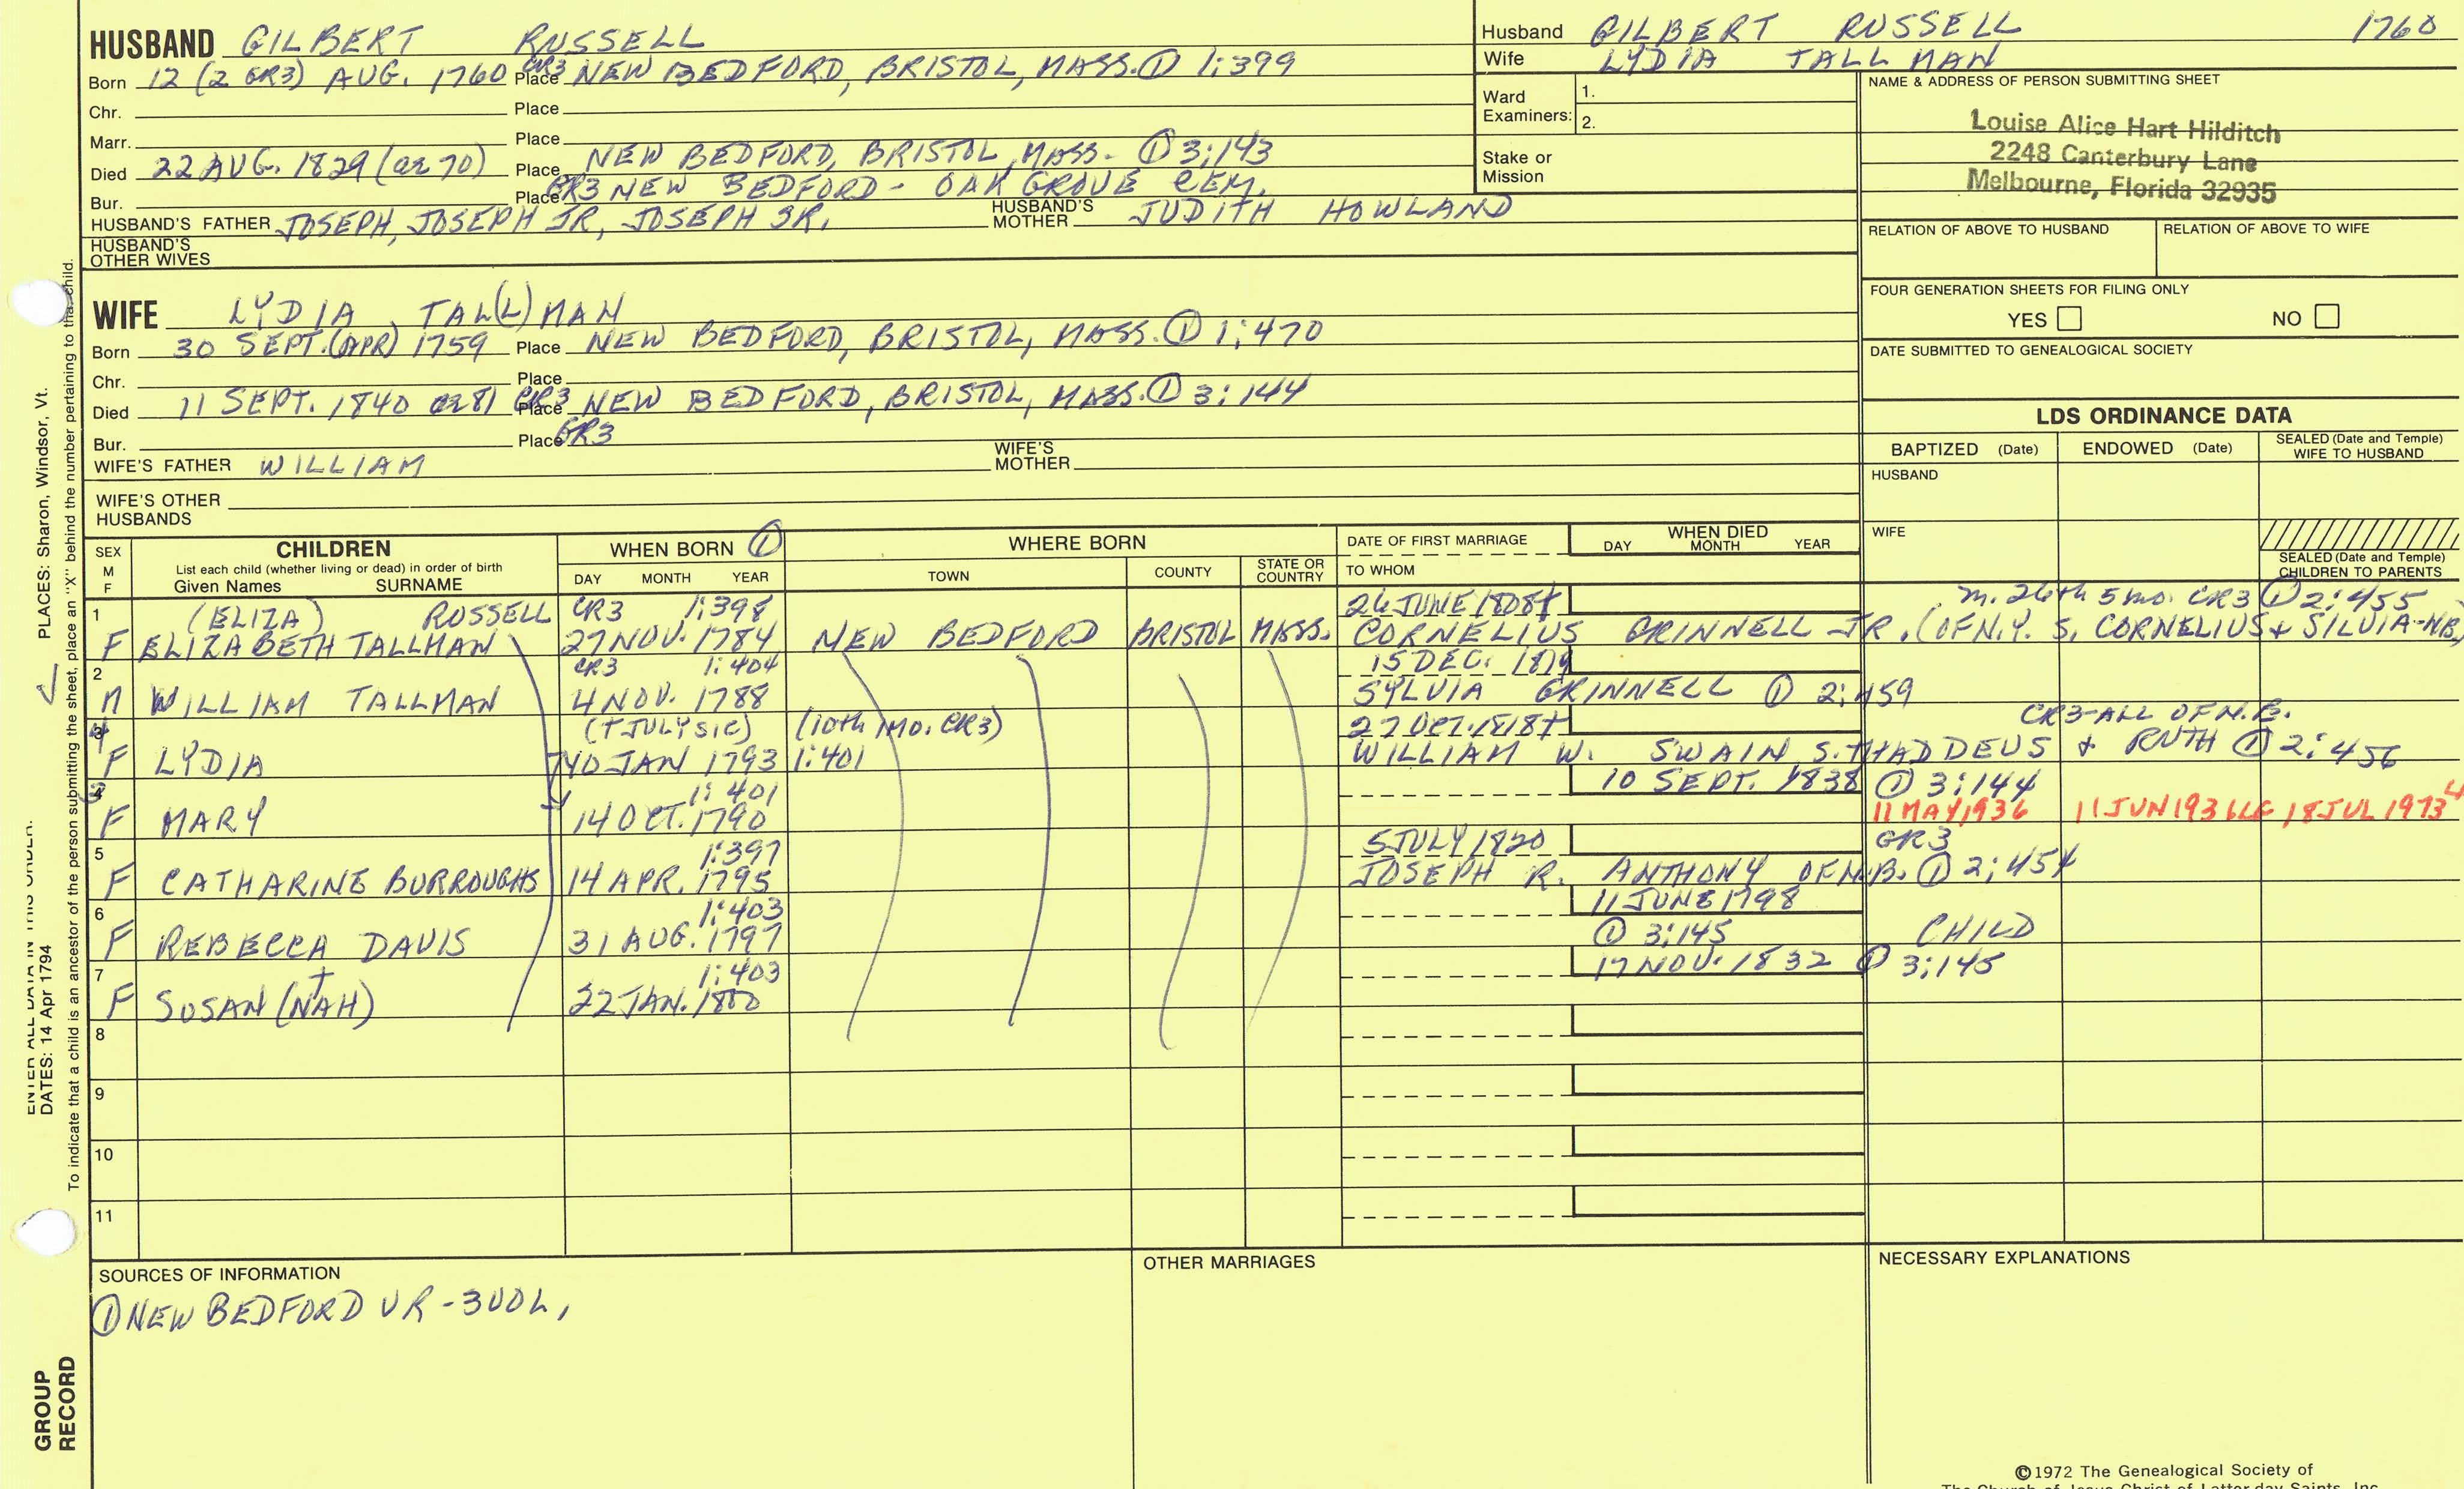 HUSBAND GILBERT RUSSELL
Born 12 (2 GR3) AUG. 1760 Place CR3 NEW BEDFORD, BRISTOL, MASS. ① 1:399
Chr. Place
Marr. Place
Died 22 AUG. 1829 (ae 70) Place NEW BEDFORD, BRISTOL, MASS. ① 3:143
Bur. Place GR3 NEW BEDFORD - OAK GROVE CEM.
HUSBAND'S FATHER JOSEPH, JOSEPH JR, JOSEPH 3R. HUSBAND'S MOTHER JUDITH HOWLAND
HUSBAND'S OTHER WIVES
Husband GILBERT RUSSELL 1760
Wife LYDIA TALLMAN
Ward Examiners: 1.
2.
Stake or Mission
NAME & ADDRESS OF PERSON SUBMITTING SHEET
Louise Alice Hart Hilditch
2248 Canterbury Lane
Melbourne, Florida 32935
RELATION OF ABOVE TO HUSBAND RELATION OF ABOVE TO WIFE
FOUR GENERATION SHEETS FOR FILING ONLY
YES NO
DATE SUBMITTED TO GENEALOGICAL SOCIETY
WIFE LYDIA TAL(L)MAN
Born 30 SEPT. (APR) 1759 Place NEW BEDFORD, BRISTOL, MASS. ① 1:470
Chr. Place
Died 11 SEPT. 1840 ae 81 GR3 Place NEW BEDFORD, BRISTOL, MASS. ① 3:144
Bur. Place GR3
WIFE'S FATHER WILLIAM WIFE'S MOTHER
WIFE'S OTHER HUSBANDS
LDS ORDINANCE DATA
BAPTIZED (Date) ENDOWED (Date) SEALED (Date and Temple) WIFE TO HUSBAND
HUSBAND
WIFE
SEALED (Date and Temple) CHILDREN TO PARENTS
SEX M F
CHILDREN
List each child (whether living or dead) in order of birth
Given Names SURNAME
WHEN BORN ①
DAY MONTH YEAR
WHERE BORN
TOWN COUNTY STATE OR COUNTRY
DATE OF FIRST MARRIAGE
TO WHOM
WHEN DIED
DAY MONTH YEAR
1 (ELIZA) RUSSELL CR3 1:398 26 JUNE 1808+ m. 26th 5 mo. CR3 ① 2:455
F ELIZABETH TALLMAN 27 NOV. 1784 NEW BEDFORD BRISTOL MASS. CORNELIUS GRINNELL JR. (OF N.Y. S. CORNELIUS + SILVIA-NB)
2 CR3 1:404 15 DEC. 1819
M WILLIAM TALLMAN 4 NOV. 1788 SYLVIA GRINNELL ① 2:459
4 (7 JULY SIC) (10th MO. CR3) 27 OCT. 1818+ CR3-ALL OF N.B.
F LYDIA JAN 1793 1:401 WILLIAM W. SWAIN, S. THADDEUS + RUTH ① 2:456
3 1:401 10 SEPT. 1838 ① 3:144
F MARY 14 OCT. 1790 11 MAY 1936 11 JUN 1936 LG 18 JUL 1973
5 1:397 5 JULY 1820 GR3
F CATHARINE BURROUGHS 14 APR. 1795 JOSEPH R. ANTHONY OF N.B. ① 2:454
6 1:403 11 JUNE 1798
F REBECCA DAVIS 31 AUG. 1797 ① 3:145 CHILD
7 1:403 17 NOV. 1832 ① 3:145
F SUSAN (NAH) 22 JAN. 1800
8
9
10
11
SOURCES OF INFORMATION
① NEW BEDFORD VR - 3 VOL,
OTHER MARRIAGES
NECESSARY EXPLANATIONS
©1972 The Genealogical Society of
The Church of Jesus Christ of Latter-day Saints, Inc.
ENTER ALL DATA IN THIS ORDER:
DATES: 14 Apr 1794
PLACES: Sharon, Windsor, Vt.
To indicate that a child is an ancestor of the person submitting the sheet, place an "X" behind the number pertaining to that child.
GROUP RECORD